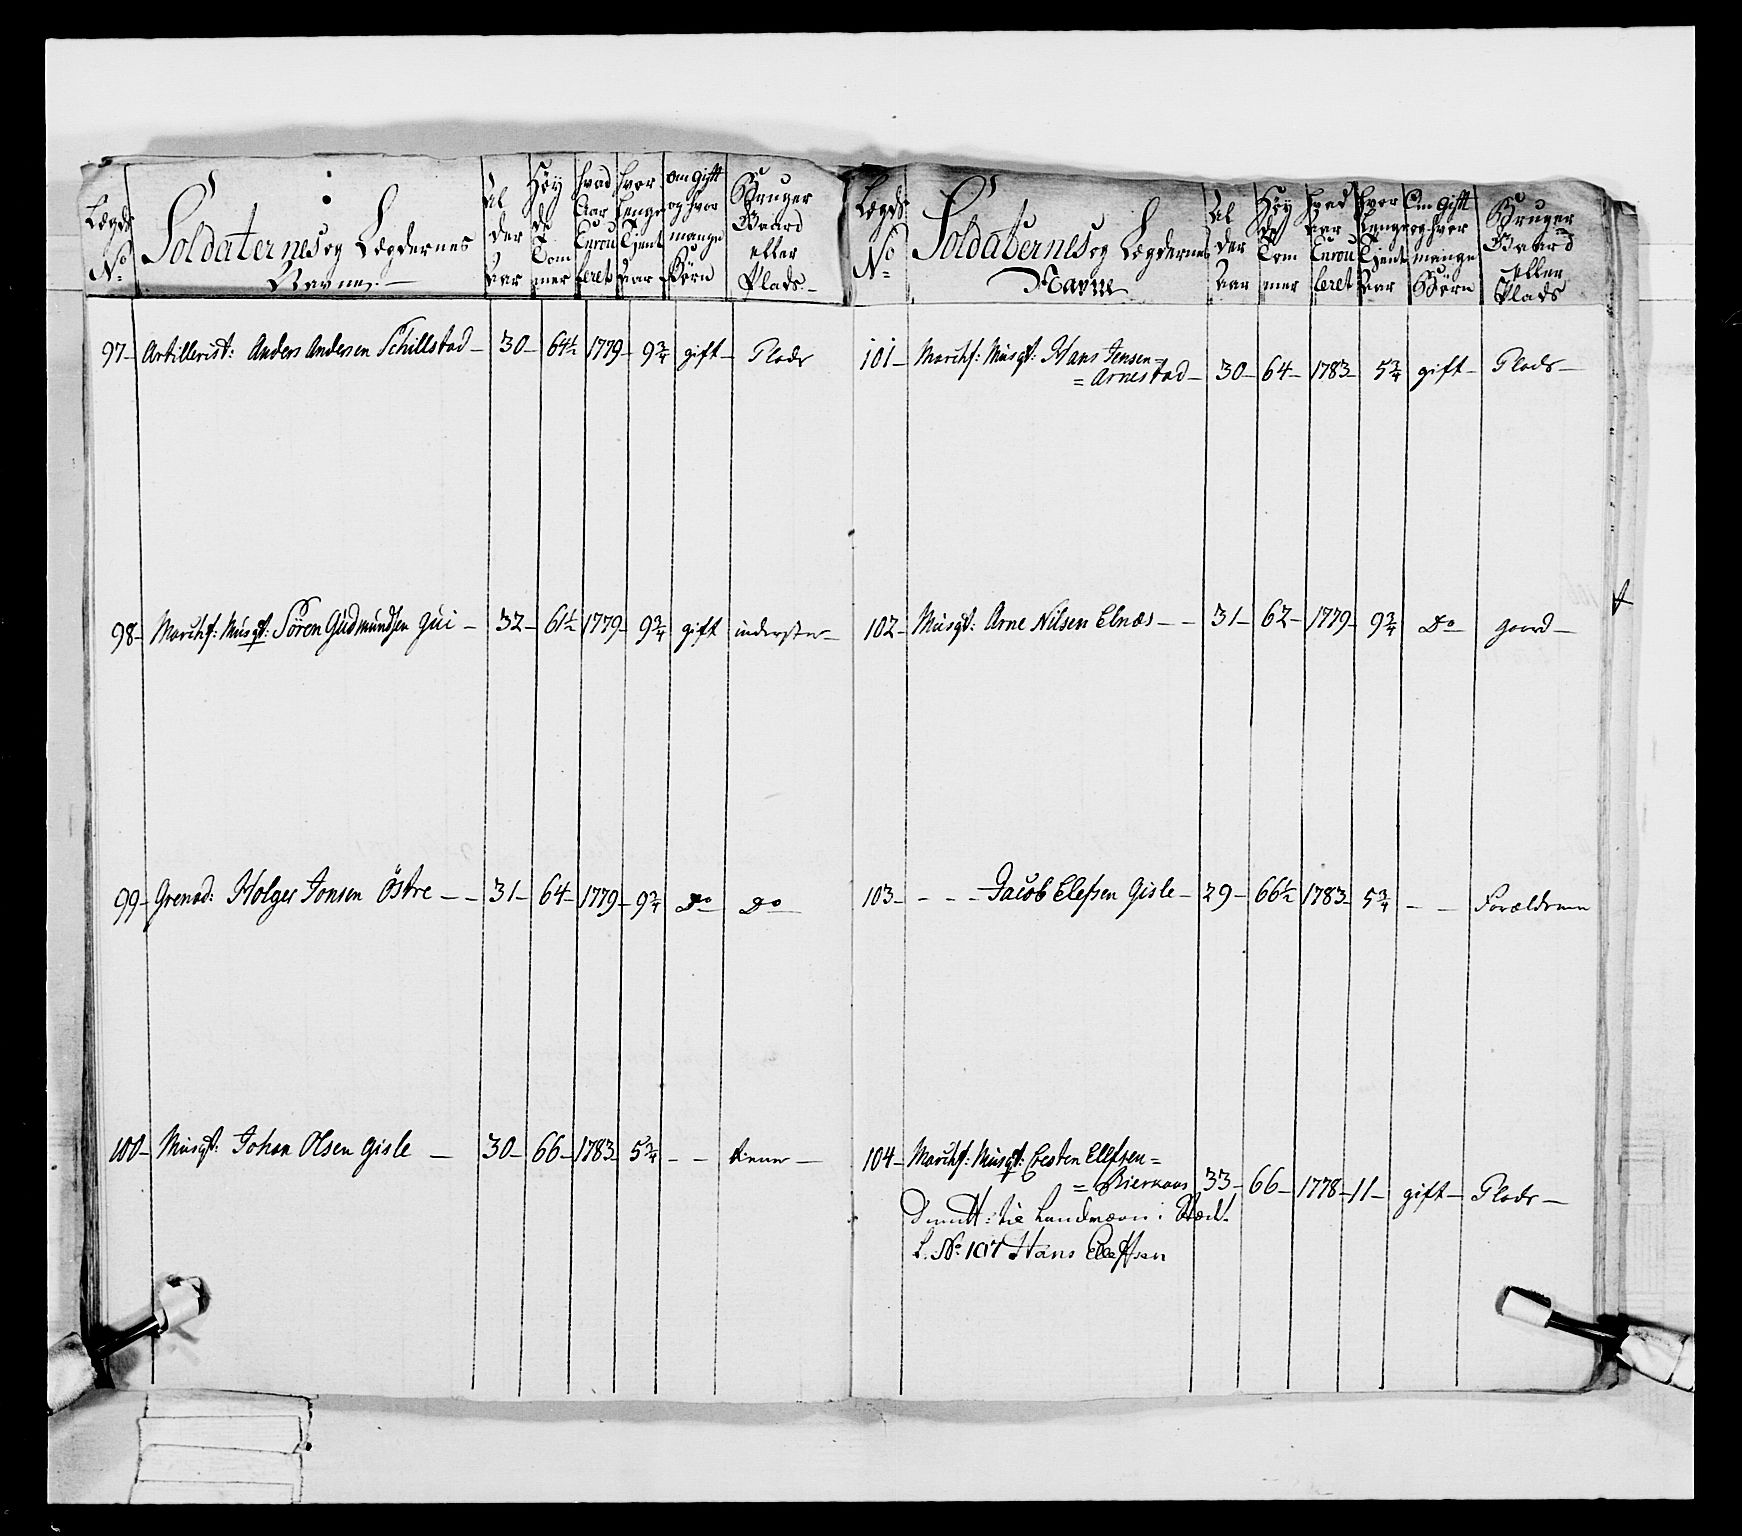 Lægds No Soldaternes og Lægdernes Navne. Al der Aar Høy de Tom mer hvad Aar Enrou leret hvor lenge Tjent Aar om gift og hvor mange Børn Bruger Gaard eller Plads.
97 Artillerist: Anders Andersen Schillstad 30 64½ 1779 9¾ gift Plads
98 Marchs: Musqt: Sören Gudmundsen Gui 32 61½ 1779 9¾ gift inderster
99 Grenad: Holger Jonsen Östre 31 64 1779 9¾ Do Do
100 Musqt: Johan Olsen Gisle 30 66 1783 5¾ - - tiener
Lægds No Soldaternes og Lægdernes Navne Al der Aar Høy de Tom mer hvad Aar Enrou leret hvor lenge Tjent Aar Om gift og hvor mange Børn Bruger Gaard eller Plads
101 Marchs: Musqt: Hans Jensen=
=Arnestad 30 64 1783 5¾ gift Plads
102 Musqt: Arne Nilsen Elnæs 31 62 1779 9¾ Do gaard
103 - - - Jacob Elefsen Gisle 29 66½ 1783 5¾ - - Forældrene
104 Marchs: Musqt: Cresten Ellefsen=
=Bierkaas 33 66 1778 11 gift Plads
Dimitt: til Landværn:
L. No 107 Hans Ellefsen